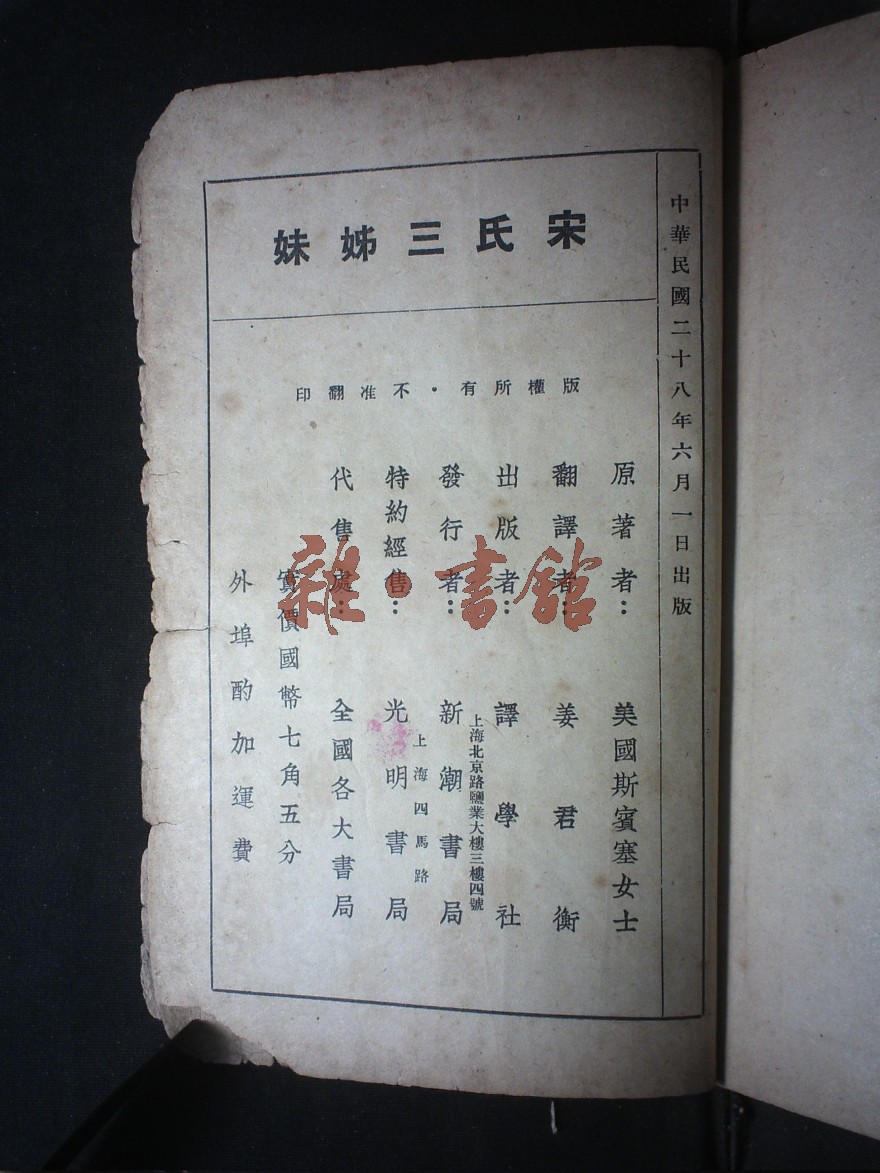 中華民國二十八年六月一日出版
宋氏三姊妹
版權所有・不准翻印
原著者：美國斯賓塞女士
翻譯者：姜君衡
出版者：譯學社
上海北京路鹽業大樓三樓四號
發行者：新潮書局
上海四馬路
特約經售：光明書局
代售處：全國各大書局
實價國幣七角五分
外埠酌加運費
雜・書館